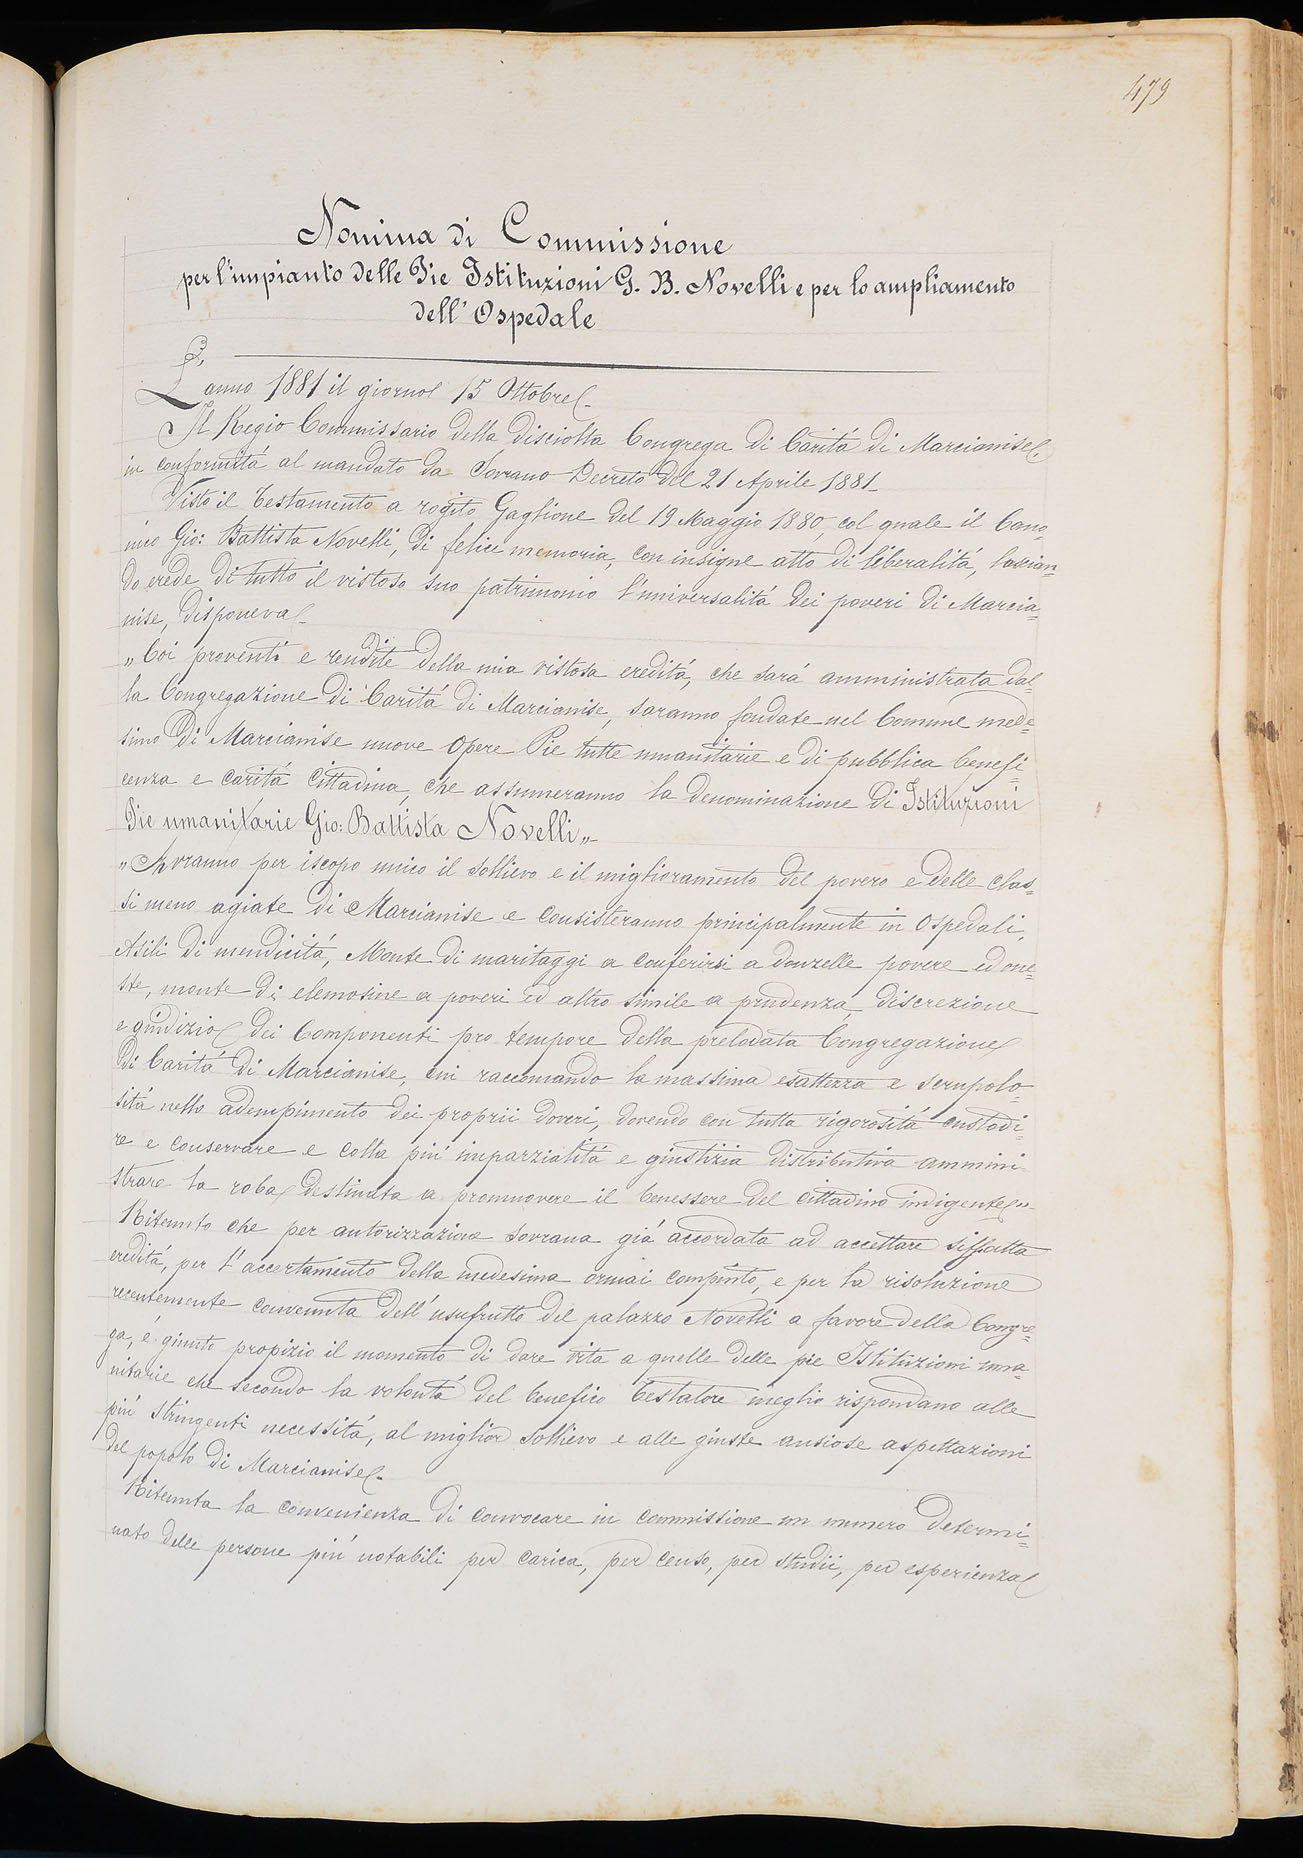 479
Nomina di Commissione
per l'impianto delle Pie Istituzioni G. B. Novelli e per lo ampliamento
dell'Ospedale
L'anno 1881 il giorno 15 Ottobre.
Il Regio Commissario della disciolta Congrega di Carità di Marcianise,
in conformità al mandato da Sovrano Decreto del 21 Aprile 1881_
Visto il testamento a rogito Gaglione del 19 Maggio 1880, col quale il Cano=
nico Gio: Battista Novelli, di felice memoria, con insigne atto di liberalità, lascian=
do erede di tutto il vistoso suo patrimonio l'universalità dei poveri di Marcia=
nise, disponeva_
„Coi proventi e rendite della mia vistosa eredità, che sarà amministrata dal=
la Congregazione di Carità di Marcianise, saranno fondate nel Comune mede=
simo di Marcianise nuove Opere Pie tutte umanitarie e di pubblica benefi=
cenza e carità Cittadina, che assumeranno la denominazione di Istituzioni
Pie umanitarie Gio: Battista Novelli„_
„Avranno per iscopo unico il sollievo e il miglioramento del povero e delle clas=
si meno agiate di Marcianise e consisteranno principalmente in Ospedali,
Asili di mendicità, Monte di maritaggi a conferirsi a donzelle povere ed one=
ste, monte di elemosine a poveri ed altro simile a prudenza, discrezione
e giudizio dei Componenti pro tempore della prelodata Congregazione
di Carità di Marcianise, cui raccomando la massima esattezza e scrupolo=
sità nello adempimento dei proprii doveri, dovendo con tutta rigorosità custodi=
re e conservare e colla più imparzialità e giustizia distributiva ammini=
strare la roba destinata a promuovere il benessere del cittadino indigente„_
Ritenuto che per autorizzazione sovrana già accordata ad accettare siffatta
eredità, per l'accertamento della medesima ormai compiuto, e per la risoluzione
recentemente convenuta dell'usufrutto del palazzo Novelli a favore della Congre=
ga, è giunto propizio il momento di dare vita a quelle delle pie Istituzioni uma=
nitarie che secondo la volontà del benefico testatore meglio rispondano alle
più stringenti necessità, al miglior sollievo e alle giuste ansiose aspettazioni
del popolo di Marcianise.
Ritenuta la convenienza di convocare in commissione un numero determi=
nato delle persone più notabili per carica, per censo, per studii, per esperienza